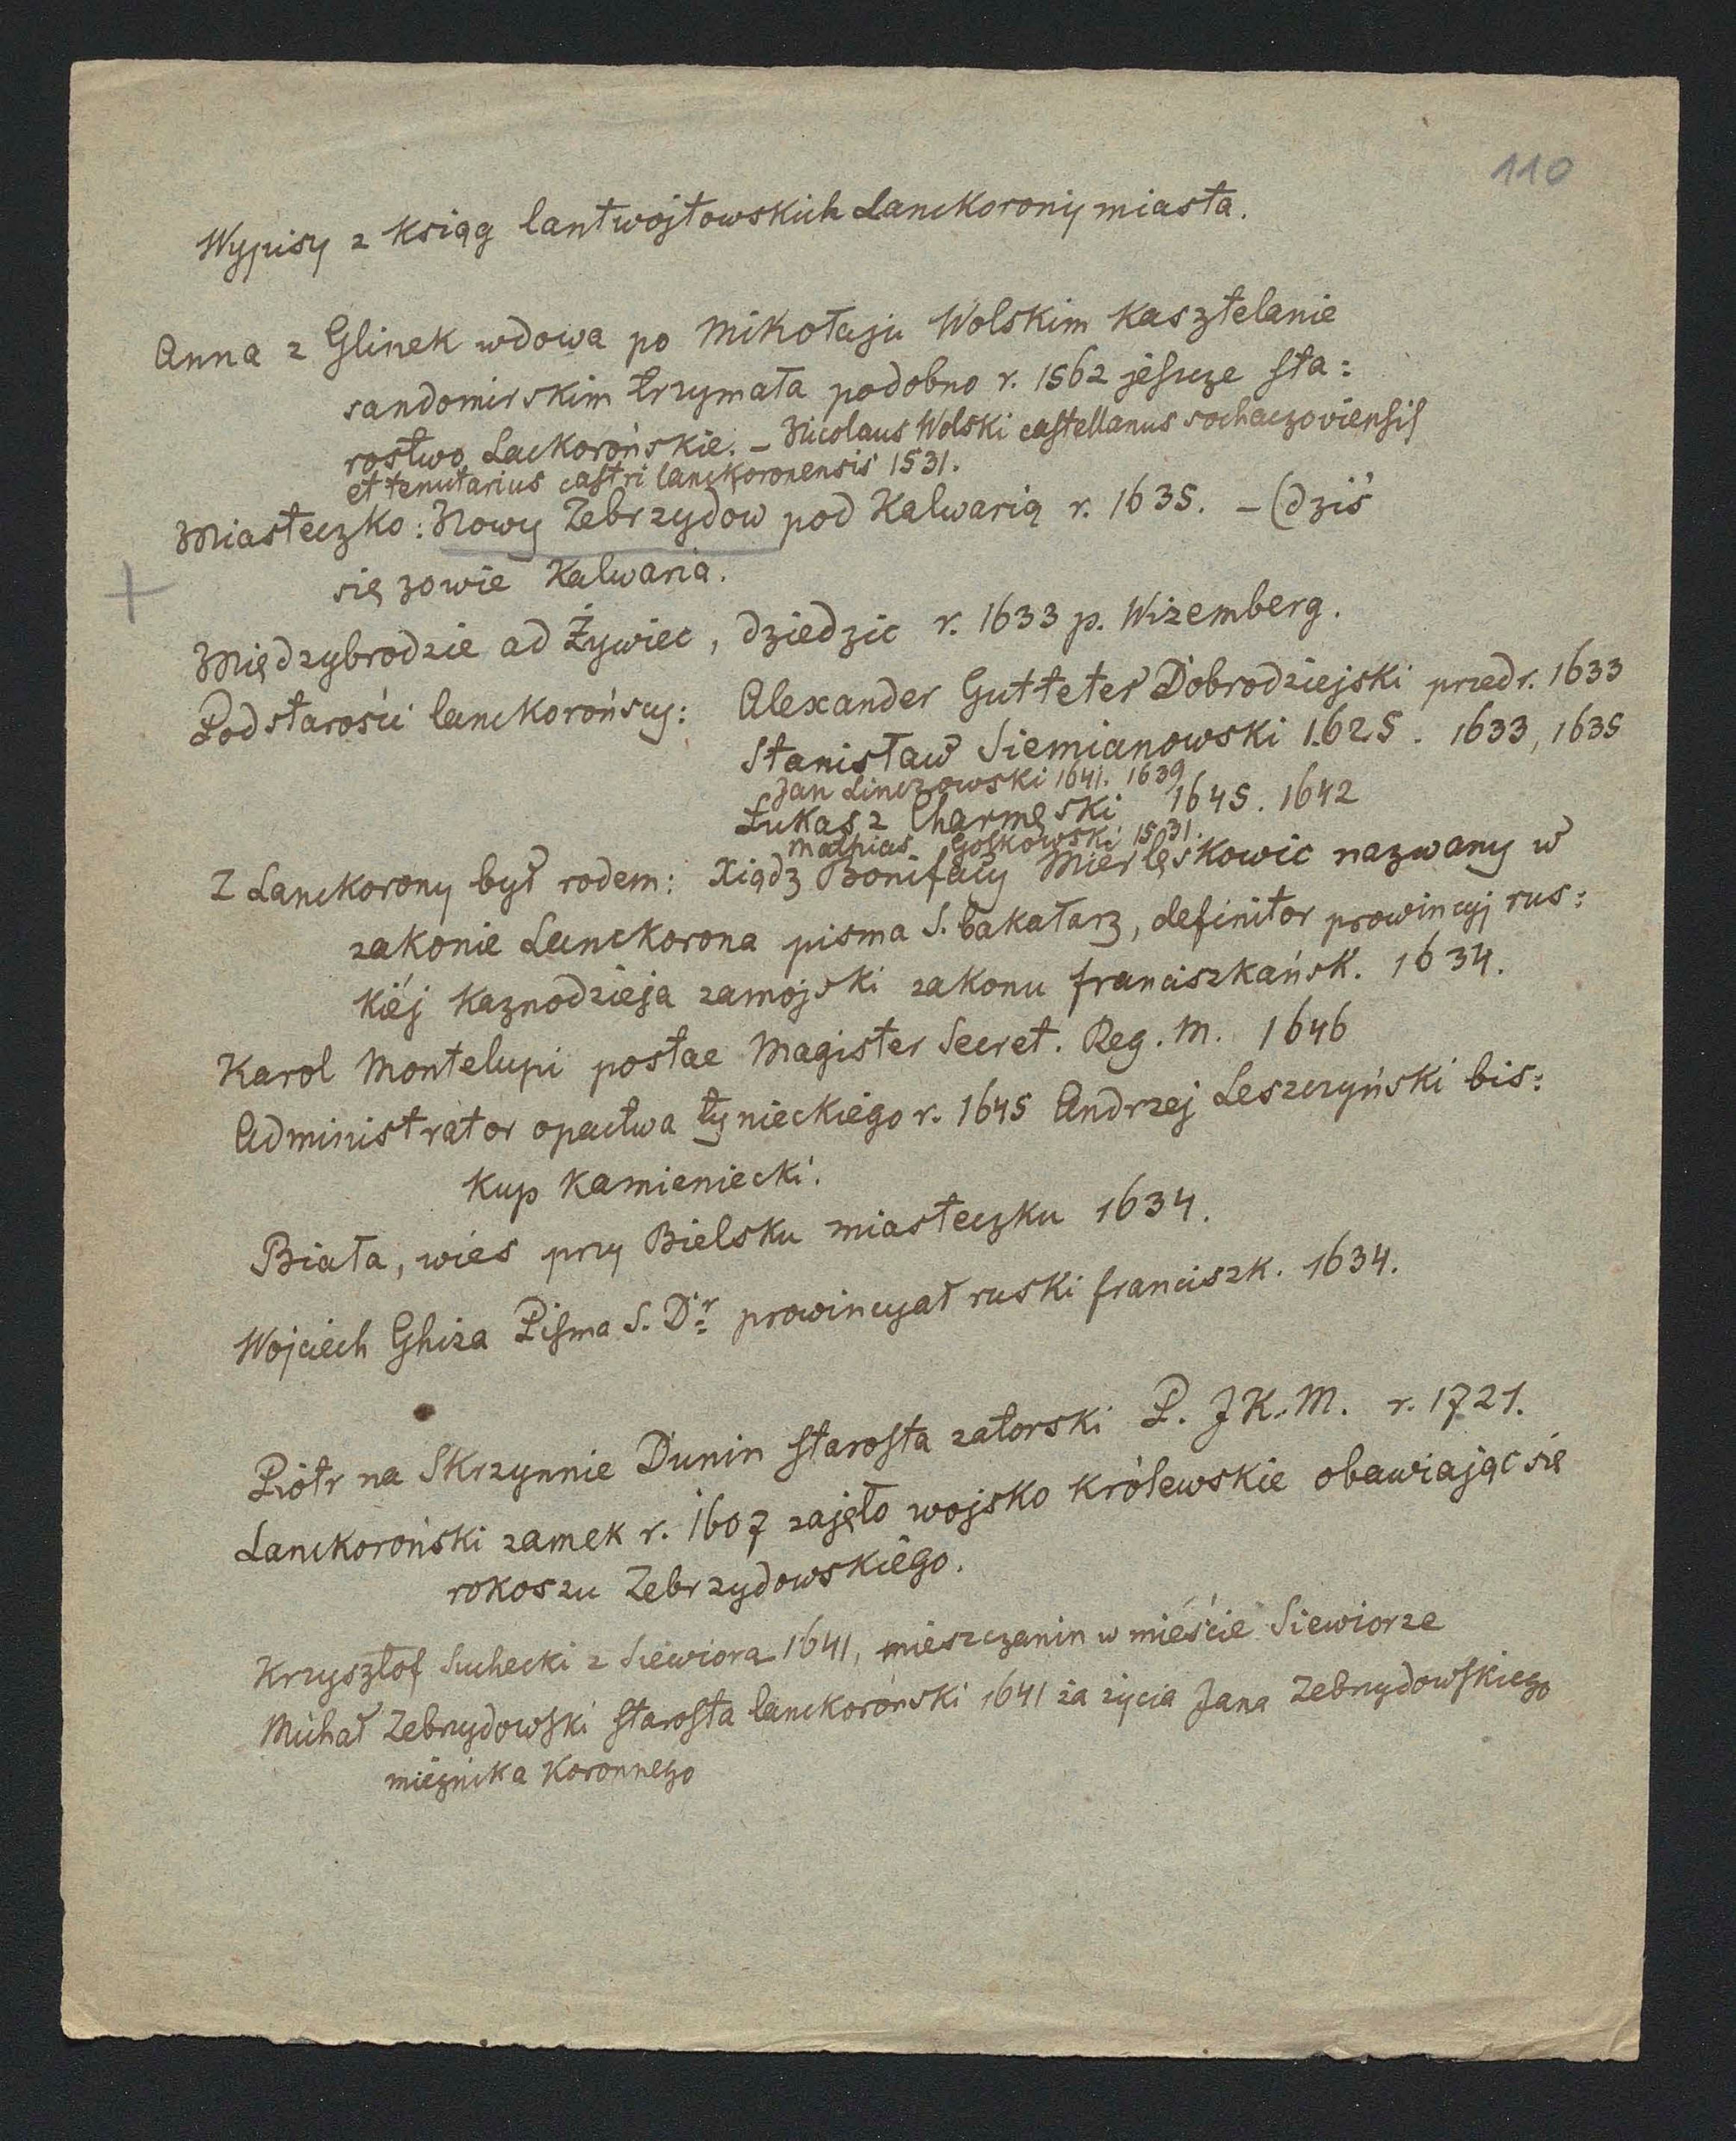 110
Wypisy z ksiąg lantwojtowskich Lanckorony miasta.
Anna z Glinek wdowa po Mikołaju Wolskim kasztelanie
sandomirskim trzymała podobno r. 1562 jeszcze sta:
rostwo Lackorońskie. – Nicolaus Wolski castellanus sochaczoviensis
et tenutarius castri lanckoronensis 1531.
Miasteczko: Nowy Zebrzydow pod Kalwarią r. 1635. – (dziś
się zowie Kalwaria.
Międzybrodzie ad Żywiec, dziedzic r. 1633 p. Wizemberg.
Podstarości lanckorońscy: Alexander Gutteter Dobrodziejski przed r. 1633
Stanisław Siemianowski 1625. 1633, 1635
Jan Linczowski 1641. 1639
Łukasz Charmęski 1645. 1642
Mathias Goskowski 1531.
Z Lanckorony był rodem: Xiądz Bonifacy Mierlęskowic nazwany w
zakonie Lanckorona pisma S. bakałarz, definitor prowincyj rus:
kiéj kaznodzieja zamojski zakonu franciszkańsk. 1634.
Karol Montelupi postae Magister Secret. Reg. M. 1646
Administrator opactwa tynieckiego r. 1645 Andrzej Leszczyński bis:
kup kamieniecki.
Biała, wieś przy Bielsku miasteczku 1634.
Wojciech Ghiza Pisma S. Dr prowincyał ruski franciszk. 1634.
Piotr na Skrzynnie Dunin starosta zatorski P. JK.M. r. 1721.
Lanckoroński zamek r. 1607 zajęło wojsko królewskie obawiając się
rokoszu Zebrzydowskiégo.
Krzysztof Suchecki z Siewiora 1641, mieszczanin w mieście Siewiorze
Michał Zebrzydowski starosta lanckoroński 1641 za życia Jana Zebrzydowskiego
miecznika koronnego